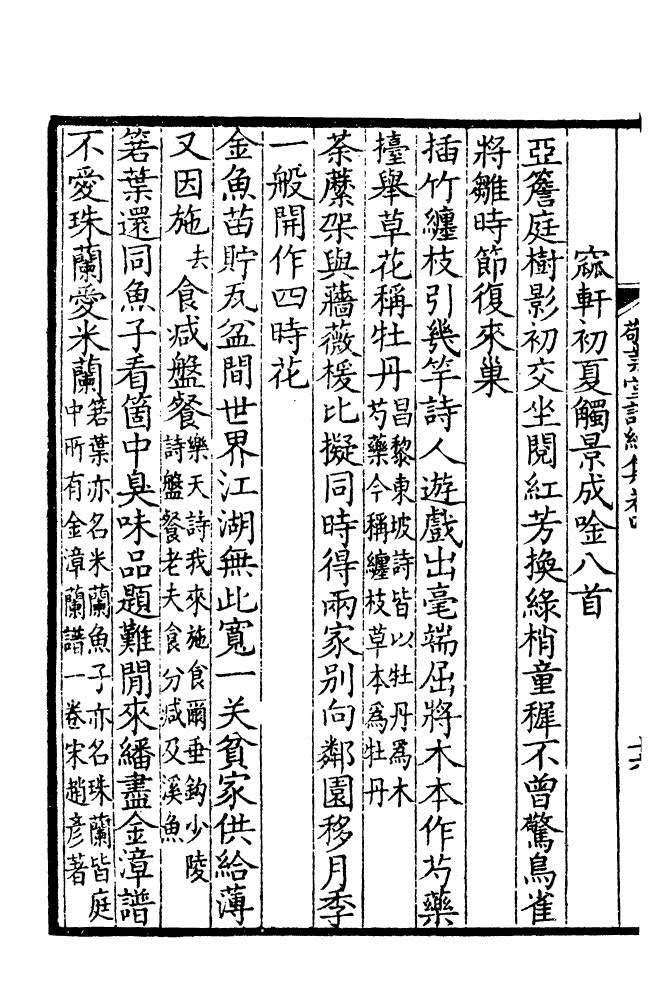 窳軒初夏觸景成唫八首
亞簷庭樹影初交坐閱紅芳換綠梢童穉不曾驚鳥雀
將雛時節復來巢
插竹纏枝引幾竿詩人遊戲出毫端屈將木本作芍藥
擡舉草花稱牡丹昌黎東坡詩皆以牡丹爲木
芍藥今稱纏枝草本爲牡丹
荼蘼架與薔薇楥比擬同時得兩家別向鄰園移月季
一般開作四時花
金魚苗貯瓦盆間世界江湖無此寬一关貧家供給薄
又因施去食減盤餐樂天詩我來施食爾垂鈎少陵
詩盤餐老夫食分減及溪魚
箬葉還同魚子看箇中臭味品題難閒來繙盡金漳譜
不愛珠蘭愛米蘭箬葉亦名米蘭魚子亦名珠蘭皆庭
中所有金漳蘭譜一卷宋趙彥著